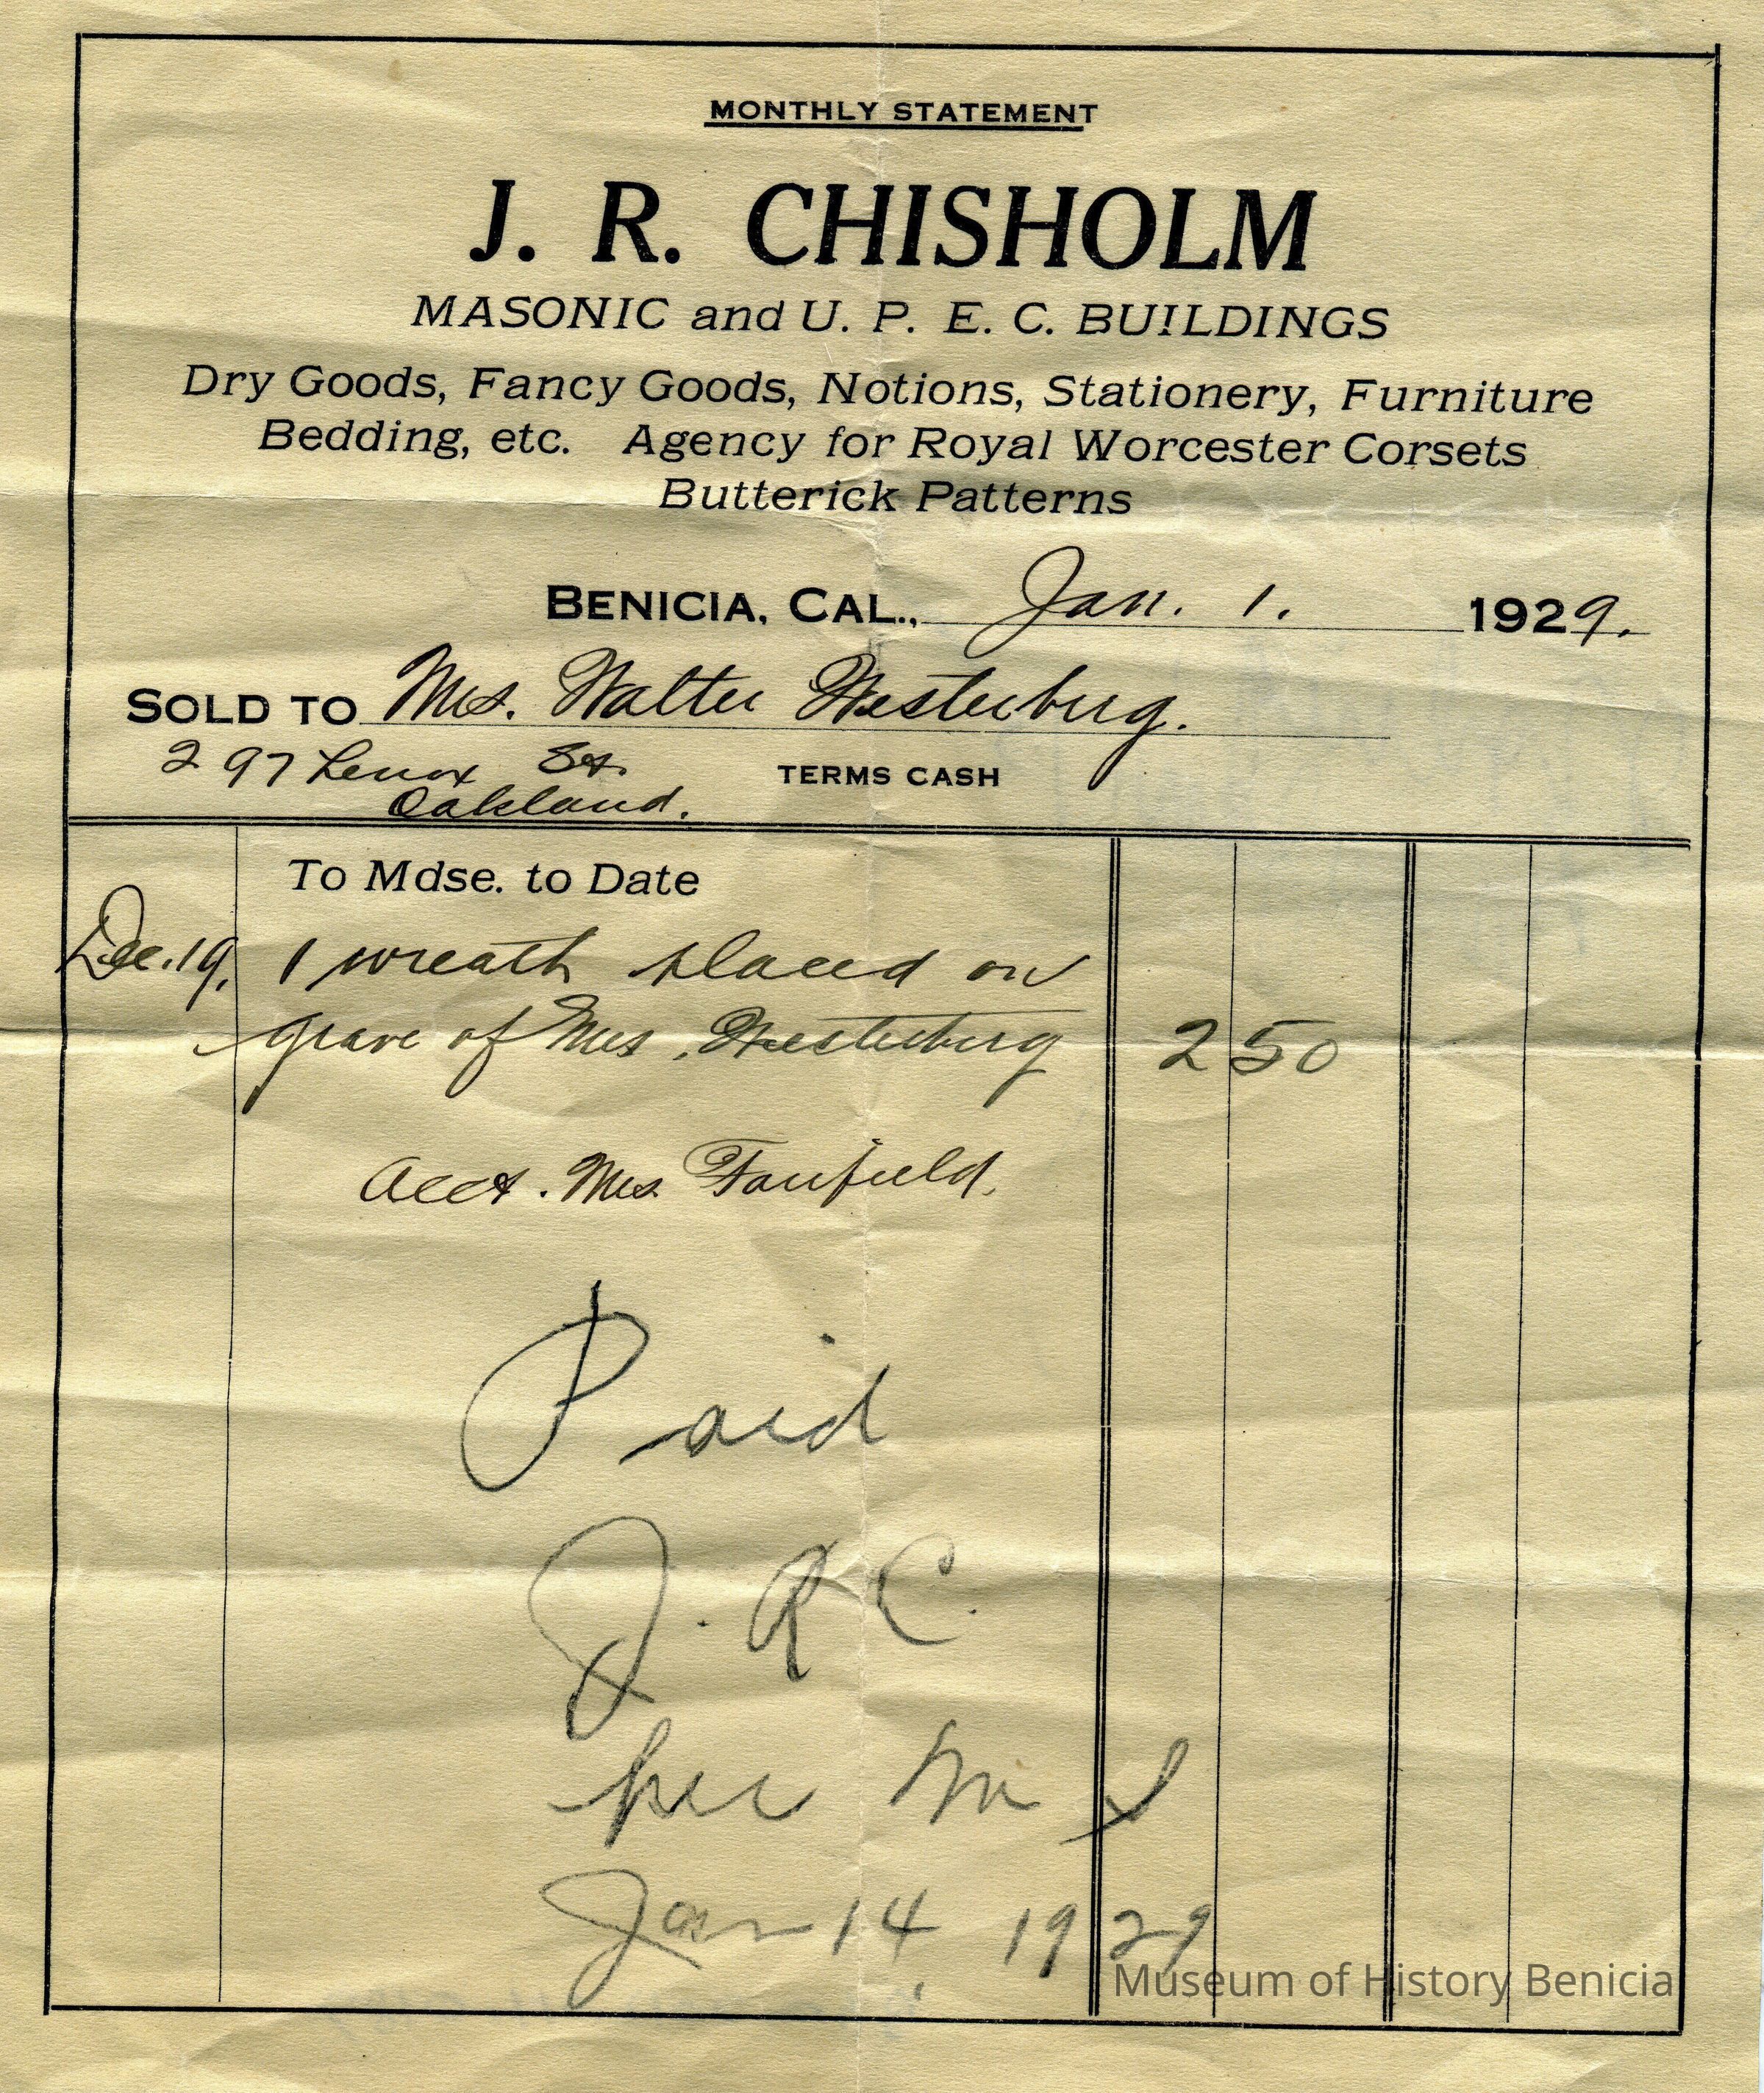 MONTHLY STATEMENT
J. R. CHISHOLM
MASONIC and U. P. E. C. BUILDINGS
Dry Goods, Fancy Goods, Notions, Stationery, Furniture
Bedding, etc. Agency for Royal Worcester Corsets
Butterick Patterns
BENICIA, CAL., Jan. 1. 1929.
SOLD TO Mrs. Walter Westerburg.
297 Lenox St. TERMS CASH
Oakland.
To Mdse. to Date
Dec. 19. 1 wreath placed on
grave of Mrs. Westerburg 2 50
Acct. Mrs Fairfield.
Paid
J. R C.
per
Jan 14 1929
Museum of History Benicia